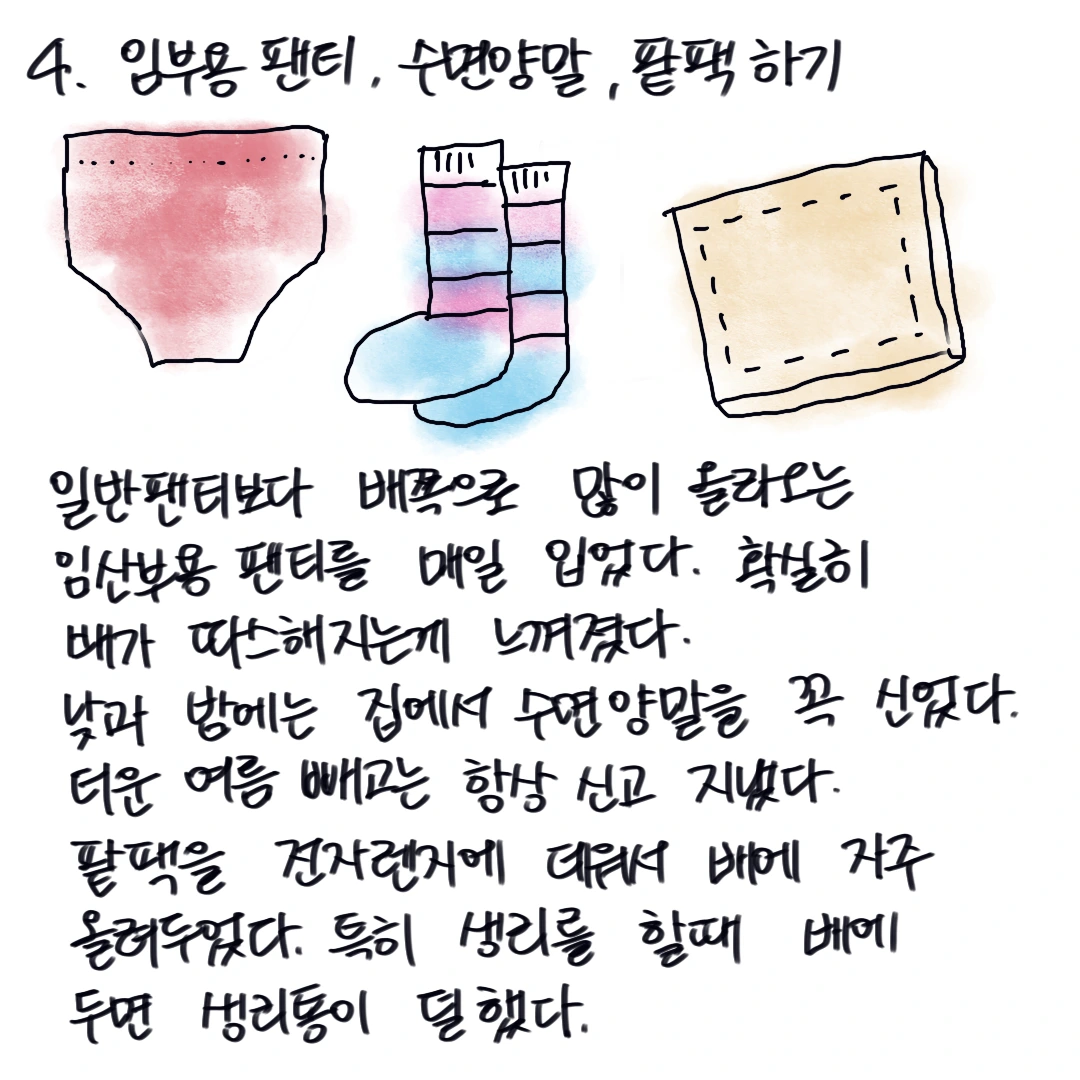 4. 임부용 팬티, 수면양말, 팥팩 하기
일반팬티보다 배쪽으로 많이 올라오는
임산부용 팬티를 매일 입었다. 확실히
배가 따스해지는게 느껴졌다.
낮과 밤에는 집에서 수면양말을 꼭 신었다.
더운 여름 빼고는 항상 신고 지냈다.
팥팩을 전자렌지에 데워서 배에 자주
올려두었다. 특히 생리를 할때 배에
두면 생리통이 덜했다.